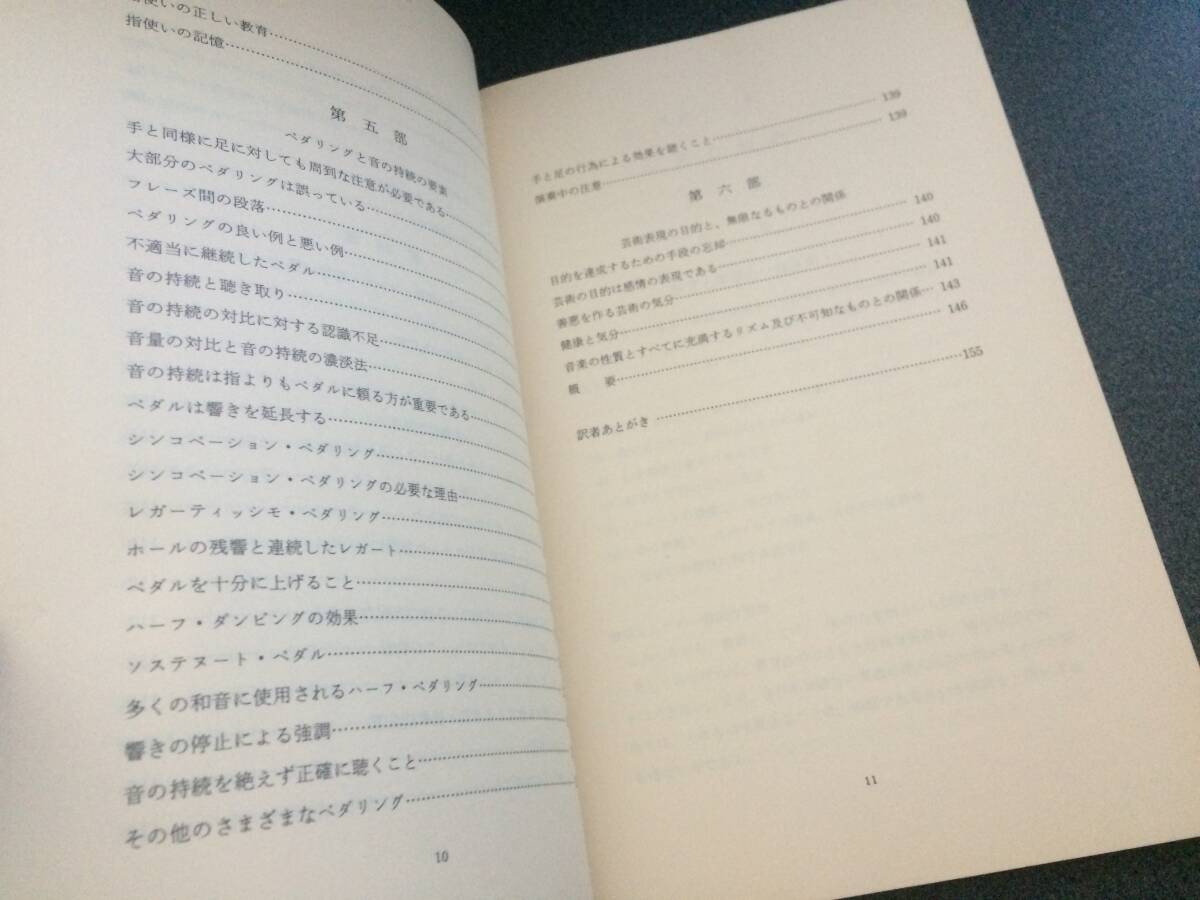 指使いの正しい教育
指使いの記憶
第五部
ペダリングと音の持続の要素
手と同様に足に対しても周到な注意が必要である
大部分のペダリングは誤っている
フレーズ間の段落
ペダリングの良い例と悪い例
不適当に継続したペダル
音の持続と聴き取り
音の持続の対比に対する認識不足
音量の対比と音の持続の濃淡法
音の持続は指よりもペダルに頼る方が重要である
ペダルは響きを延長する
シンコペーション・ペダリング
シンコペーション・ペダリングの必要な理由
レガーティッシモ・ペダリング
ホールの残響と連続したレガート
ペダルを十分に上げること
ハーフ・ダンピングの効果
ソステヌート・ペダル
多くの和音に使用されるハーフ・ペダリング
響きの停止による強調
音の持続を絶えず正確に聴くこと
その他のさまざまなペダリング
10
手と足の行為による効果を聴くこと 139
演奏中の注意 139
第六部
芸術表現の目的と、無限なるものとの関係
目的を達成するための手段の忘却 140
芸術の目的は感情の表現である 140
善悪を作る芸術の気分 141
健康と気分 141
音楽の性質とすべてに充満するリズム及び不可知なものとの関係 143
概要 146
訳者あとがき 155
11